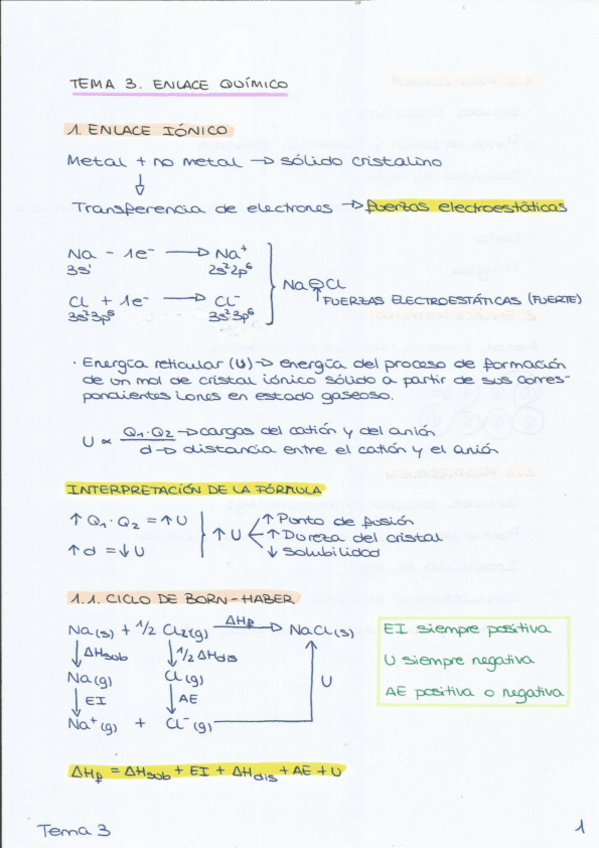 TEMA 3. ENLACE QUÍMICO
1. ENLACE IÓNICO
Metal + no metal → sólido cristalino
↓
Transferencia de electrones → fuerzas electroestáticas
Na - 1e⁻ → Na⁺
3s¹ 2s²2p⁶
Cl + 1e⁻ → Cl⁻
3s²3p⁵ 3s²3p⁶
Na Cl
↑ FUERZAS ELECTROESTÁTICAS (FUERTE)
· Energía reticular (U) → energía del proceso de formación
de un mol de cristal iónico sólido a partir de sus corres-
pondientes iones en estado gaseoso.
U ∝ Q₁·Q₂ → cargas del catión y del anión
d → distancia entre el catión y el anión
INTERPRETACIÓN DE LA FÓRMULA
↑ Q₁·Q₂ = ↑ U
↑ d = ↓ U
↑ U
↑ Punto de fusión
↑ Dureza del cristal
↓ Solubilidad
1.1. CICLO DE BORN-HABER
Na(s) + 1/2 Cl₂(g) ΔHf → NaCl(s)
↓ ΔHsub ↓ 1/2 ΔHdis
Na(g) Cl(g) U
↓ EI ↓ AE
Na⁺(g) + Cl⁻(g)
EI siempre positiva
U siempre negativa
AE positiva o negativa
ΔHf = ΔHsub + EI + ΔHdis + AE + U
Tema 3 1